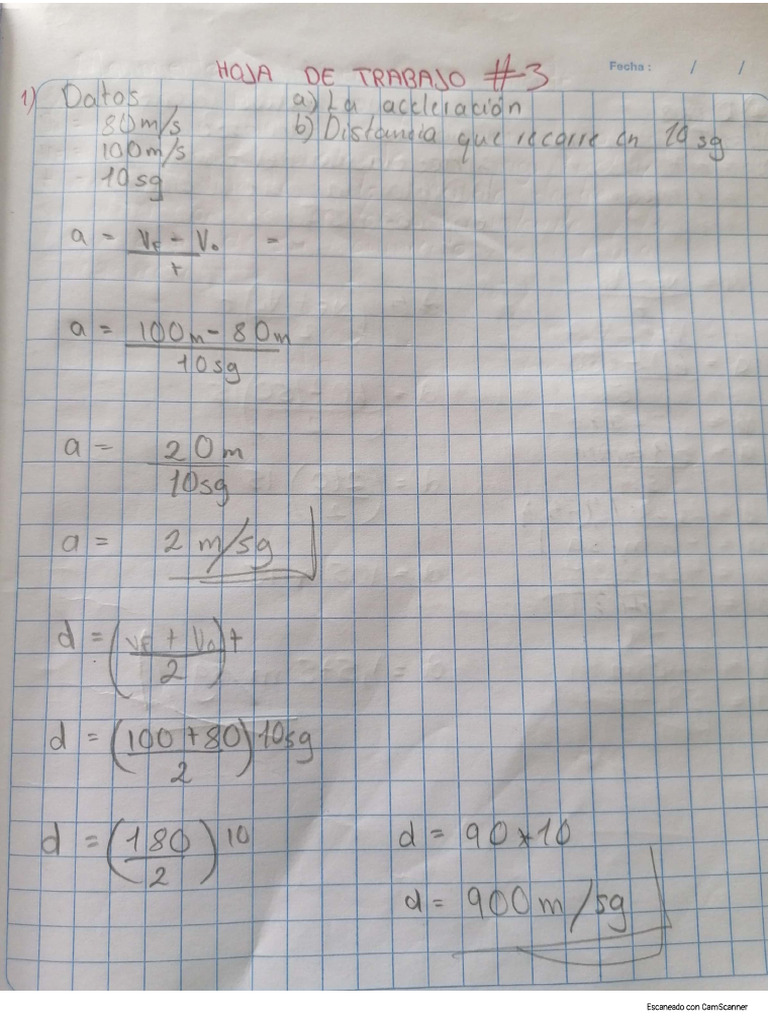 HOJA DE TRABAJO #3
Fecha: / /
1) Datos
80m/s
100m/s
10sg
a) La aceleración
b) Distancia que recorre en 10sg
a = Vf - Vo =
t
a = 100m - 80m
10sg
a = 20m
10sg
a = 2 m/sg
d = (Vf + Vo) t
2
d = (100 + 80) 10sg
2
d = (180) 10
2
d = 90 * 10
d = 900m/sg
Escaneado con CamScanner